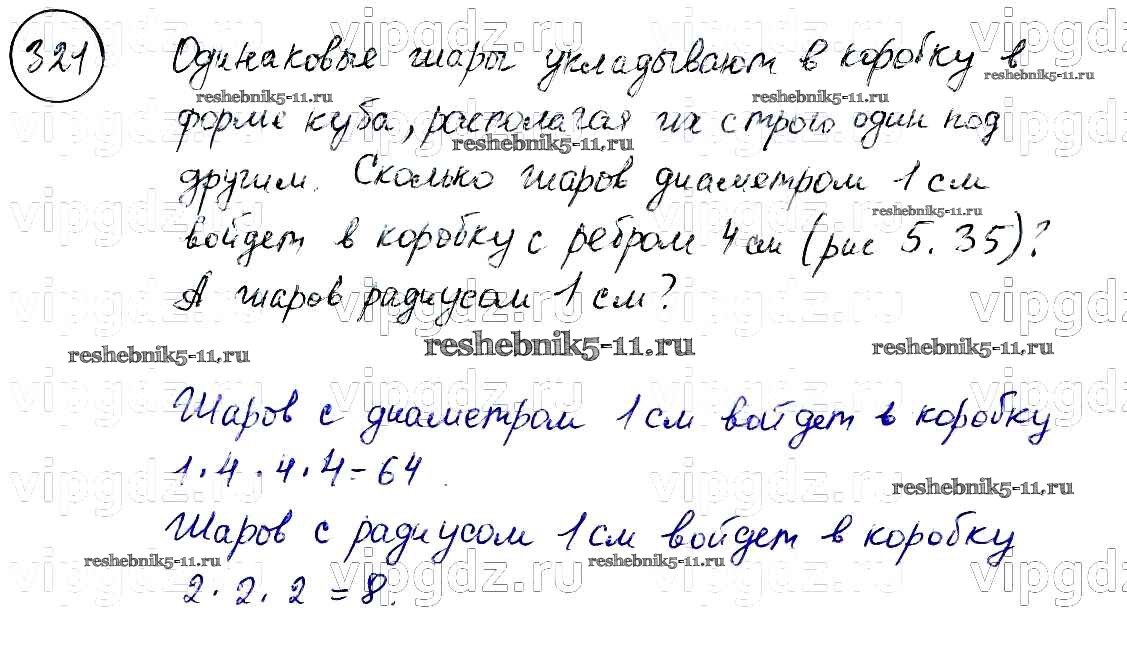 321
Одинаковые шары укладывают в коробку в
форме куба, располагая их строго один под
другим. Сколько шаров диаметром 1 см
войдет в коробку с ребром 4 см (рис 5.35)?
А шаров радиусом 1 см?
Шаров с диаметром 1 см войдет в коробку
1·4·4·4=64.
Шаров с радиусом 1 см войдет в коробку
2·2·2=8.
vipgdz.ru
reshebnik5-11.ru